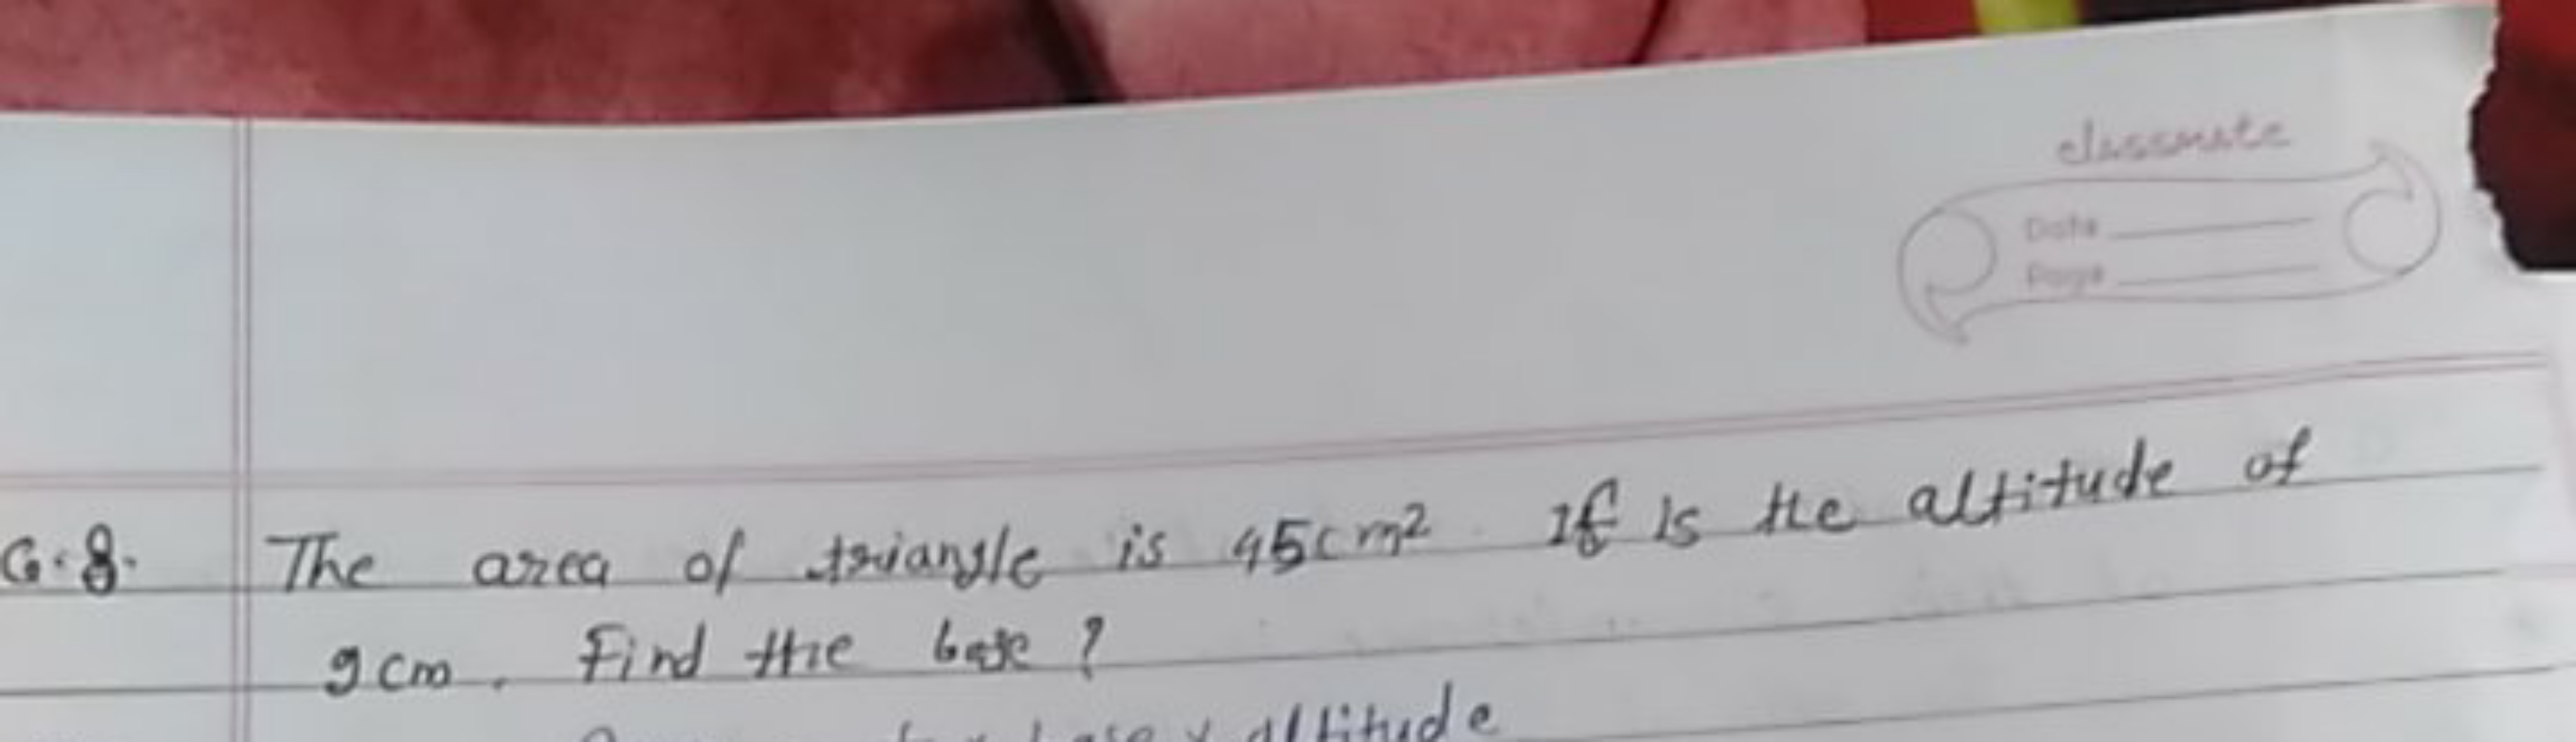 classmate
Date
Page
Q.8. The area of triangle is 45cm² If is the altitude of
9cm. Find the base ?
base x altitude